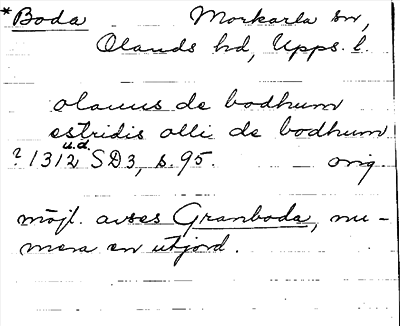 *Boda Morkarla sn,
Olands hd, Upps. l.
olauus de bodhum
estridis olli de bodhum
u.d.
? 1312 SD3, s. 95. orig
möjl. avses Granboda, nu-
mera en utjord.